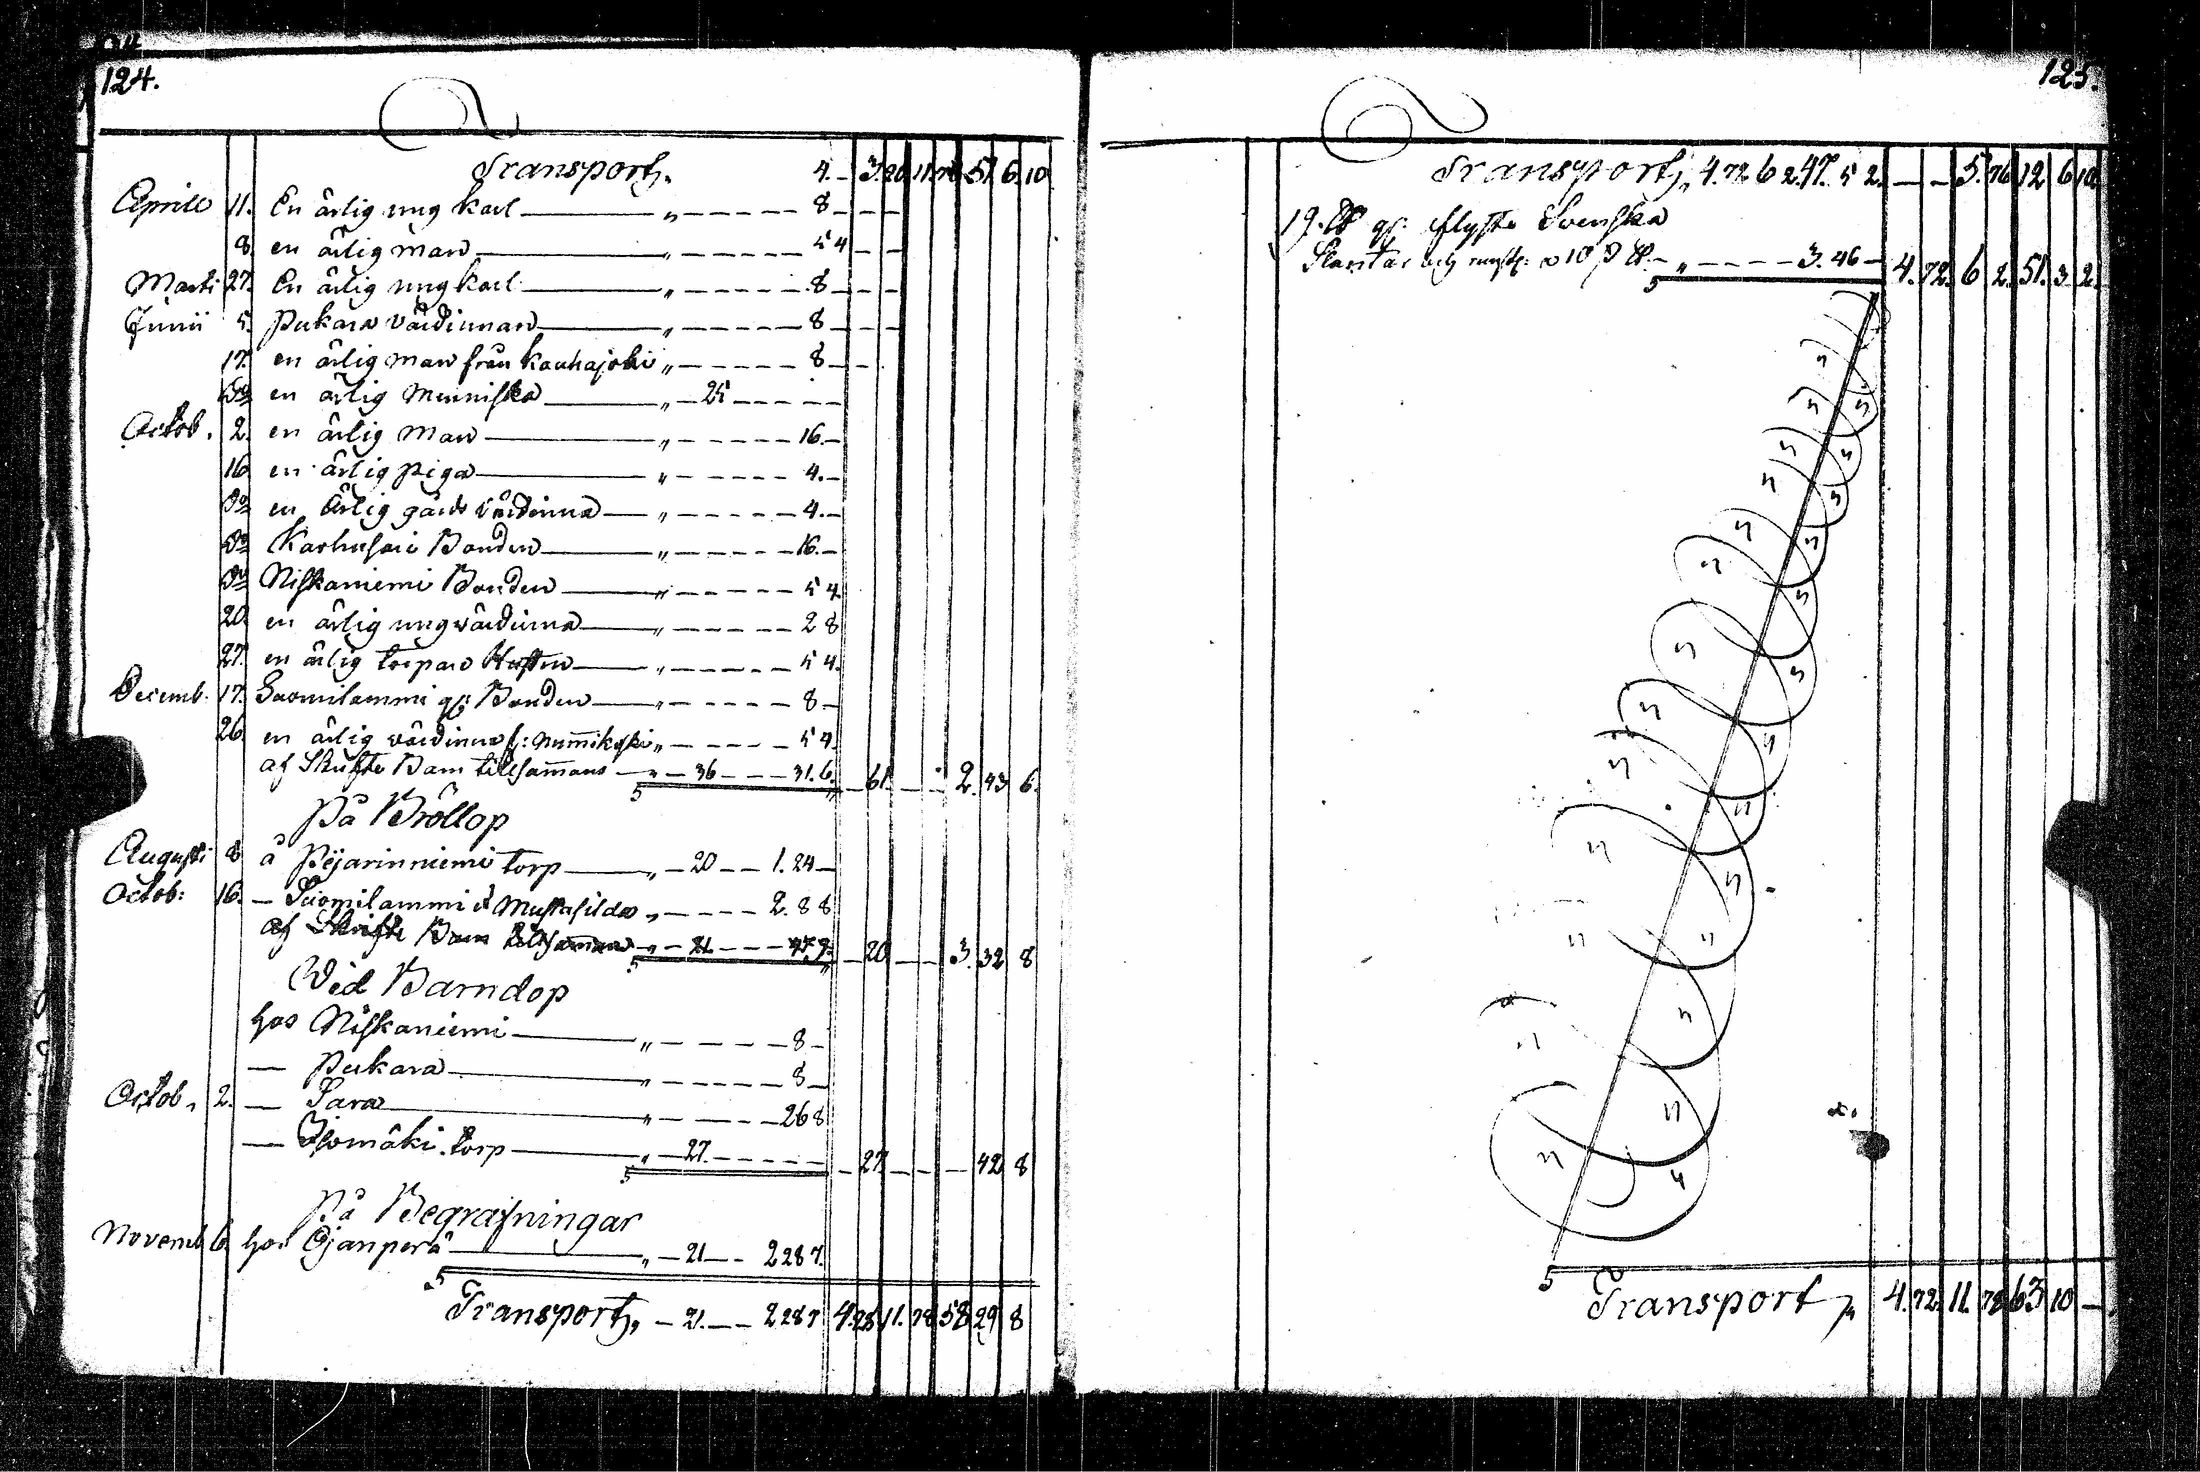 124.
Transport,. 4.- 3. 20 11. 78 51. 6. 10
Aprile 11. En ärlig ung karl „ 8
8. en ärlig man „ 5 4
Marti 27. En ärlig ung karl „ 8
Junii 5. Pukara värdinnan „ 8
17. en ärlig man från Kauhajoki „ 8
Do en ärlig Menniska „ 25
Octob. 2. en ärlig man „ 16.
16 en ärlig piga „ 4.
Do en ärlig gårds värdinna „ 4.
Do Karhusari Bonden „ 16.
Do Niskaniemi Bonden „ 5 4
20. en ärlig ung värdinna „ 2 8
27. en ärlig torpare „ 5 4.
Decemb. 17. Suomilammi gl: Bonden „ 8
26 en ärlig värdinna f: Nummikoski „ 5 4
af Skrifte Barn tillsamans „ 36 31. 6. 61. 2. 43 6.
På Bröllop
Augusti 8 å Pejarinniemi torp „ 20 1. 24
Octob: 16. Suomilammi å Mustasilda „ 2. 8 8
af Skrifte Barn tillsamans „ 21 47. 9. 20 3. 32 8
Vid Barndop
hos Niskaniemi „ 8
Pukara „ 8
Octob. 2. Sara „ 26 8
Isomäki torp „ 27. 27 42 8
På Begrafningar
Novemb. 6. hos Ojanperä „ 21 2 28 7.
Transport,. 21. 2 28 7 4. 28 11. 78 58 29 8
125.
Transport,. 4. 72 6 2. 47. 5 2. 5. 76 12 6 10
19. ℔ gl. flyste Svenska
Slantar och a 10 ℔. „ 3. 46 4. 72. 6 2. 51. 3 2.
Transport 4. 72. 11. 78 63 10